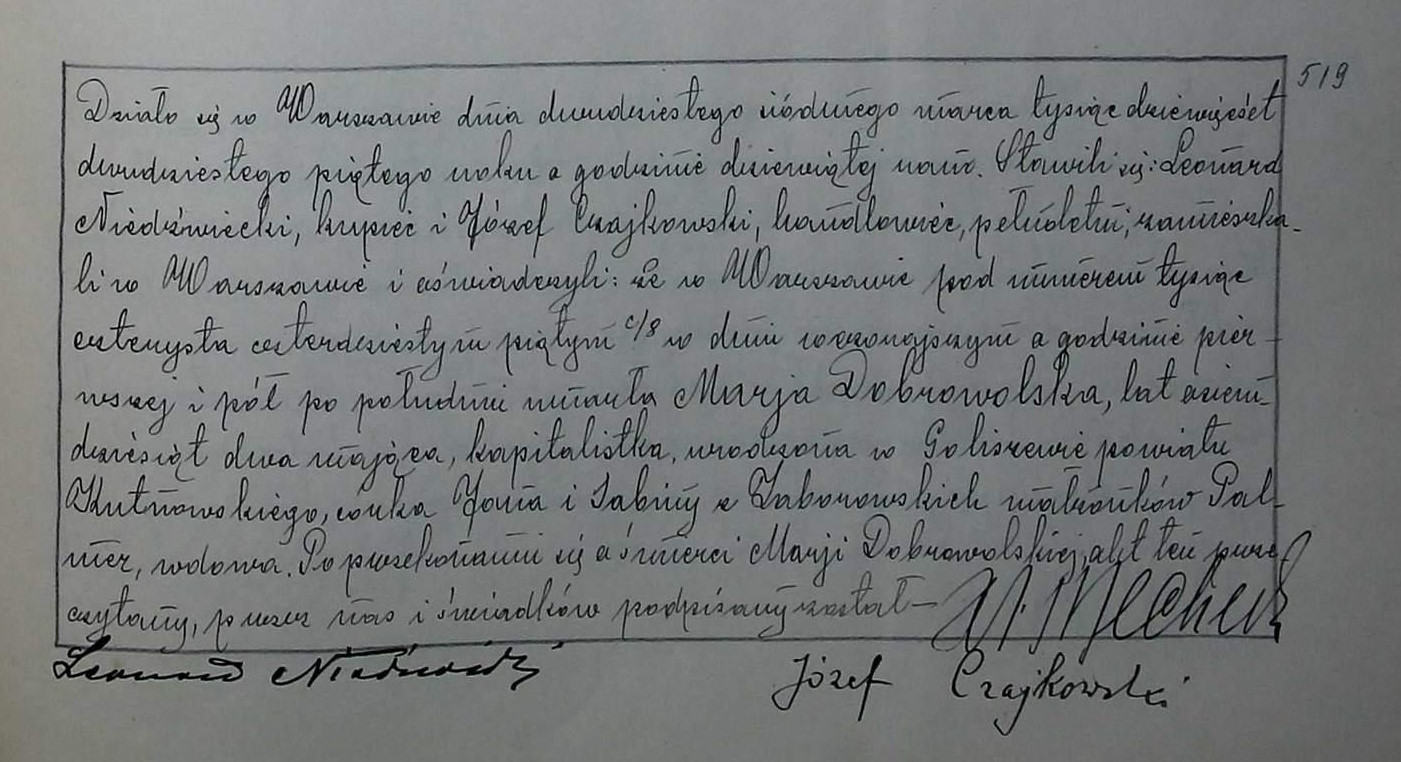 519
Działo się w Warszawie dnia dwudziestego siódmego marca tysiąc dziewięćset
dwudziestego piątego roku o godzinie dziewiątej rano. Stawili się: Leonard
Niedźwiecki, kupiec i Józef Czajkowski, handlowiec, pełnoletni, zamieszka-
li w Warszawie i oświadczyli: że w Warszawie pod numerem tysiąc
czterysta czterdziestym piątym c/8 w dniu wczorajszym o godzinie pier-
wszej i pół po południu umarła Marja Dobrowolska, lat osiem-
dziesiąt dwa mająca, kapitalistka, urodzona w Goliszewie powiatu
Kutnowskiego, córka Jona i Sabiny z Zaborowskich małżonków Pal-
mer, wdowa. Po przekonaniu się o śmierci Marji Dobrowolskiej, akt ten prze
czytany, przez nas i świadków podpisany został —
Leonard Niedźwiecki Józef Czajkowski